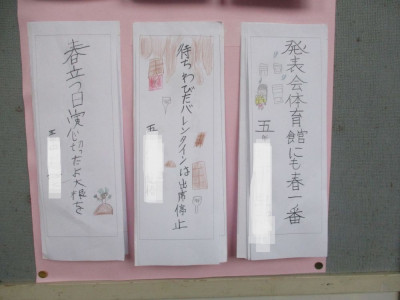 発表会体育館にも春一番
五
待ちわびたバレンタインは出席停止
五
春立つ日寛心切ったよ大根を
五